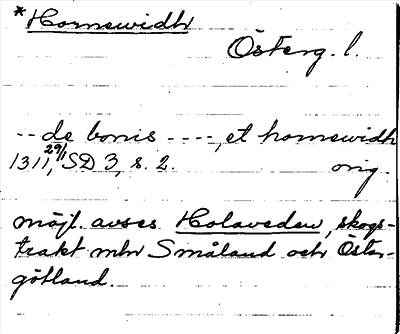 *Hornewidhr
Österg. l.
-- de bonis ----, et hornewidh
1311, 29/1 SD 3, s. 2. orig.
möjl. avses Holaveden, skogs-
trakt mln Småland och Öster-
götland.